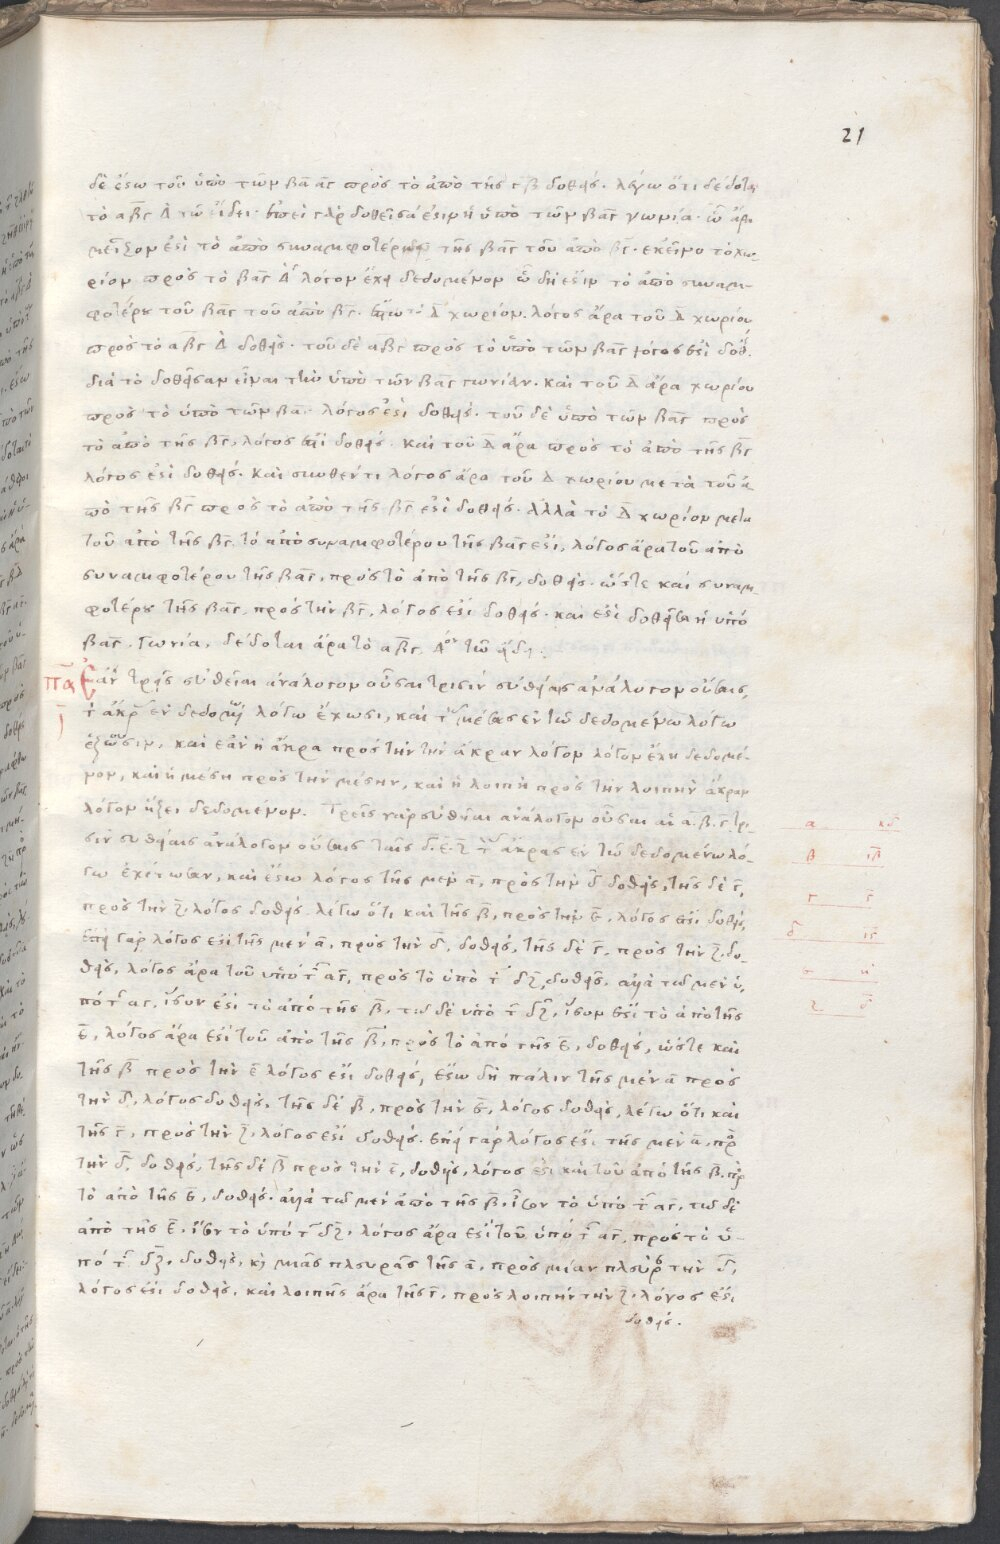 21
δὲ ἔστω τοῦ ὑπὸ τῶν βα ας πρὸς τὸ ἀπὸ τῆς γβ δοθείς. λέγω ὅτι δέδοται
τὸ αβγ Δ τῷ εἴδει. ἐπεὶ γὰρ δοθεῖσά ἐστιν ἡ ὑπὸ τῶν βαγ γωνία. ᾧ ἄρα
μεῖζόν ἐστι τὸ ἀπὸ συναμφοτέρου τῆς βαγ τοῦ ἀπὸ βγ. ἐκεῖνο τὸ χω-
ρίον πρὸς τὸ βαγ Δ λόγον ἔχει δεδομένον ᾧ δὴ ἐστιν τὸ ἀπὸ συναμ-
φοτέρου τοῦ βαγ τοῦ ἀπὸ βγ. ἔστω τὸ Δ χωρίον. λόγος ἄρα τοῦ Δ χωρίου
πρὸς τὸ αβγ Δ δοθείς. τοῦ δὲ αβγ πρὸς τὸ ὑπὸ τῶν βαγ λόγος ἐστὶ δοθ.
διὰ τὸ δοθεῖσαν εἶναι τὴν ὑπὸ τῶν βαγ γωνίαν. καὶ τοῦ Δ ἄρα χωρίου
πρὸς τὸ ὑπὸ τῶν βα. λόγος ἐστὶ δοθείς. τοῦ δὲ ὑπὸ τῶν βαγ πρὸς
τὸ ἀπὸ τῆς βγ, λόγος ἐστὶ δοθείς. καὶ τοῦ Δ ἄρα πρὸς τὸ ἀπὸ τῆς βγ
λόγος ἐστὶ δοθείς. καὶ συνθέντι λόγος ἄρα τοῦ Δ χωρίου μετὰ τοῦ ἀ
πὸ τῆς βγ πρὸς τὸ ἀπὸ τῆς βγ ἐστὶ δοθείς. ἀλλὰ τὸ Δ χωρίον μετα
τοῦ ἀπὸ τῆς βγ. τὸ ἀπὸ συναμφοτέρου τῆς βαγ ἐστι, λόγος ἄρα τοῦ ἀπὸ
συναμφοτέρου τῆς βαγ, πρὸς τὸ ἀπὸ τῆς βγ, δοθείς. ὥστε καὶ συναμ-
φοτέρου τῆς βαγ, πρὸς τὴν βγ, λόγος ἐστὶ δοθείς. καὶ ἐστὶ δοθεῖσα ἡ ὑπὸ
βαγ. γωνία, δέδοται ἄρα τὸ αβγ, Δον τῷ εἴδει:
πα Ἐὰν τρεῖς εὐθεῖαι ἀνάλογον οὖσαι τρισὶν εὐθείαις ἀνάλογον οὔσαις,
τ ἄκρ ἐν δεδομ λόγω ἔχωσι, καὶ τ μέσας ἐν τῷ δεδομένω λόγω
ἕξωσιν, καὶ ἐὰν ἡ ἄκρα πρὸς τὴν τὴν ἄκραν λόγον λόγον ἔχη δεδομέ-
νον, καὶ ἡ μέση πρὸς τὴν μέσην, καὶ ἡ λοιπὴ πρὸς τὴν λοιπὴν ἄκραν
λόγον ἥξει δεδομένον. Τρεῖς γὰρ εὐθεῖαι ἀνάλογον οὖσαι αἱ α. β. γ τρι-
σὶν εὐθείαις ἀνάλογον οὔσαις ταῖς δ. ε. ζ τ ἄκρας ἐν τῷ δεδομένω λό-
γω ἐχέτωσαν, καὶ ἔστω λόγος τῆς μεν α, πρὸς τὴν δ δοθείς, τῆς δὲ γ,
πρὸς τὴν ζ, λόγος δοθείς. λέγω ὅτι καὶ τῆς β, πρὸς τὴν ε, λόγος ἐστὶ δοθείς,
ἐπεὶ γὰρ λόγος ἐστὶ τῆς μεν α, πρὸς τὴν δ, δοθείς, τῆς δὲ γ, πρὸς τὴν ζ, δο-
θείς, λόγος ἄρα τοῦ ὑπὸ τ αγ, πρὸς τὸ ὑπὸ τ δζ, δοθείς. ἀλλὰ τω μεν ὑ,
πὸ τ αγ, ἴσον ἐστὶ τὸ ἀπὸ τῆς β, τω δὲ ὑπὸ τ δζ, ἴσον ἐστὶ τὸ ἀπὸ τῆς
ε, λόγος ἄρα ἐστὶ τοῦ ἀπὸ τῆς β, πρὸς τὸ ἀπὸ τῆς ε, δοθείς, ὥστε καὶ
τῆς β πρὸς τὴν ε λόγος ἐστὶ δοθείς, ἔστω δὴ πάλιν τῆς μεν α πρὸς
τὴν δ, λόγος δοθείς, τῆς δὲ β, πρὸς τὴν ε, λόγος δοθείς, λέγω ὅτι καὶ
τῆς γ, πρὸς τὴν ζ, λόγος ἐστὶ δοθείς. ἐπεὶ γὰρ λόγος ἐστὶ τῆς μεν α, πρ
τὴν δ, δοθείς, τῆς δὲ β πρὸς τὴν ε, δοθείς, λόγος ἐστὶ καὶ τοῦ ἀπὸ τῆς β. πρ
τὸ ἀπὸ τῆς ε, δοθείς. ἀλλὰ τω μεν ἀπὸ τῆς β, ἴσον τὸ ὑπὸ τ αγ, τω δὲ
ἀπὸ τῆς ε, ἴσον τὸ ὑπὸ τ δζ, λόγος ἄρα ἐστὶ τοῦ ὑπὸ τ αγ, πρὸς τὸ ὑ-
πὸ τ δζ, δοθείς, κ μιᾶς πλευρᾶς τῆς α, πρὸς μίαν πλευρ τὴν δ,
λόγος ἐστὶ δοθείς, καὶ λοιπῆς ἄρα τῆς γ, πρὸς λοιπὴν τὴν ζ, λόγος ἐστι
δοθείς.
α κδ
β ιβ
γ ς
δ ις
ε η
ζ δ